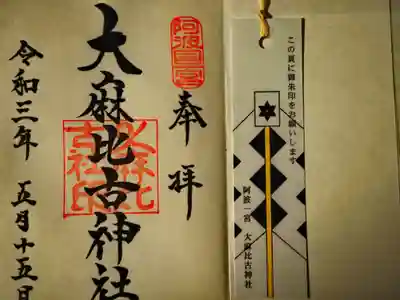 奉拝
阿波一宮
大麻比古神社
大麻比古社印
令和三年 五月十五日
この頁に御朱印をお願いします
阿波一宮 大麻比古神社